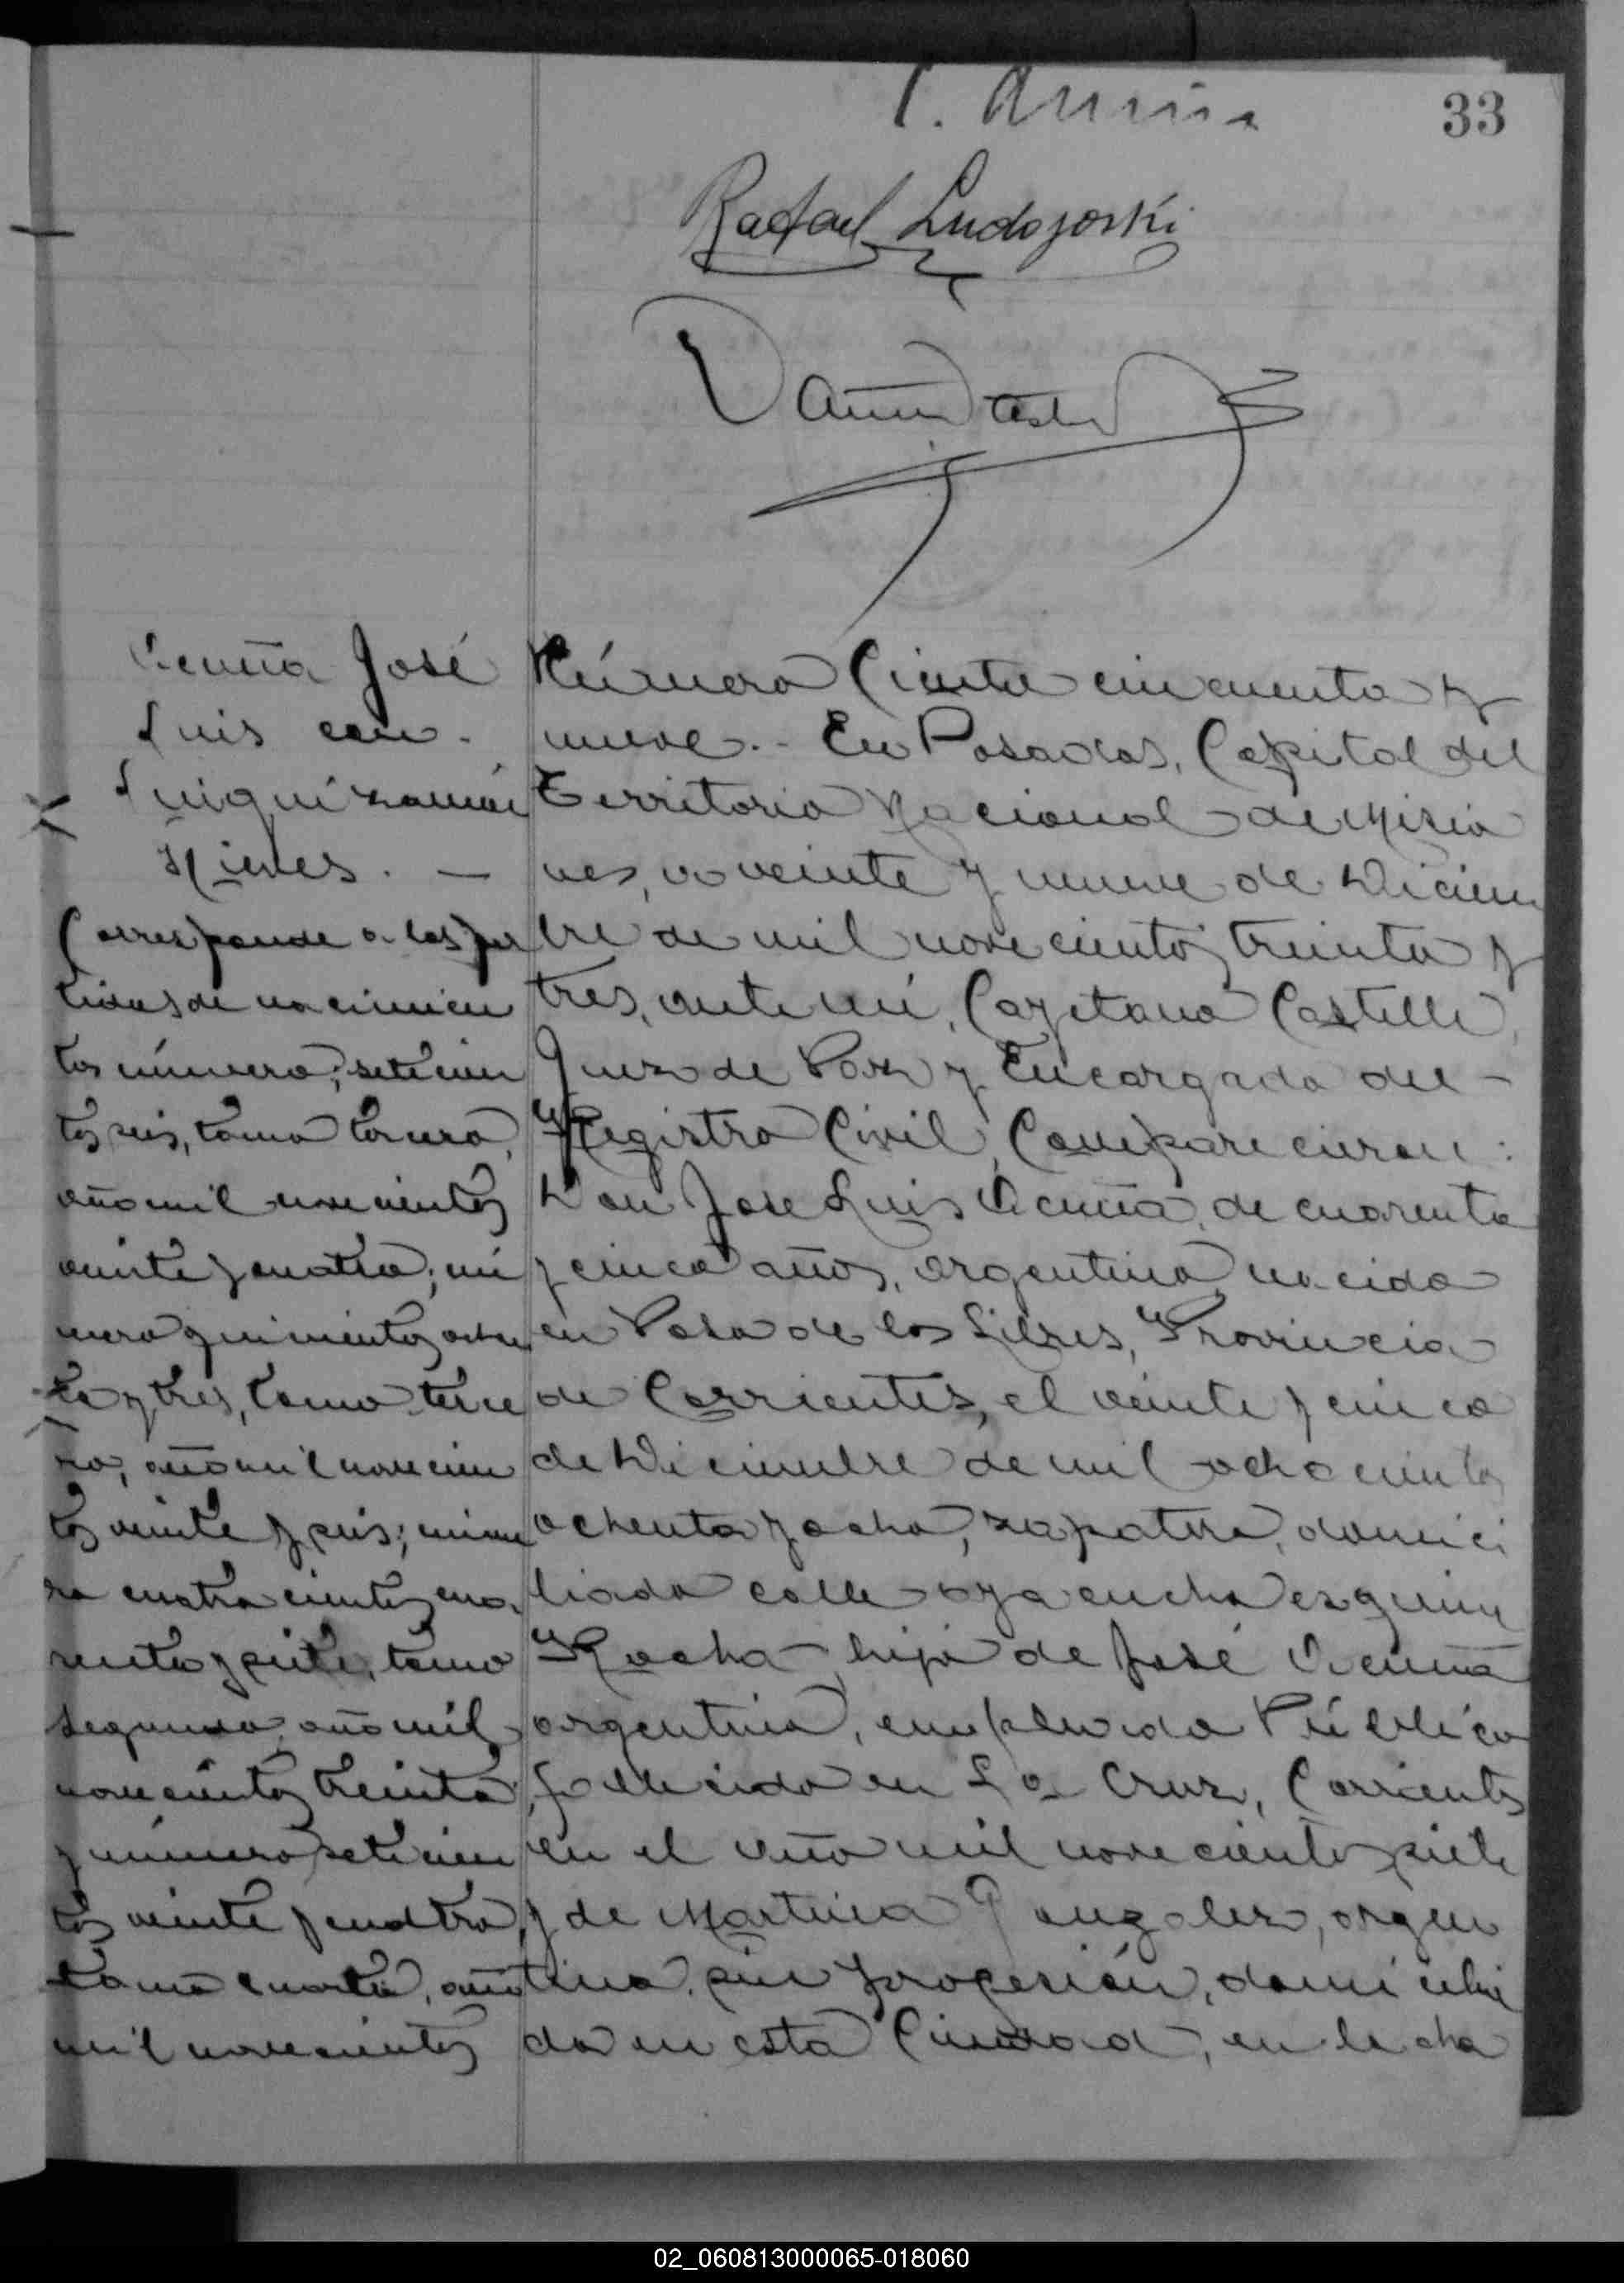 33
Rafael Ludojoski
Acuña José
Luis con.
Guiguizamón
Nieves. —
Corresponde a las par
tidas de nacimien
tos número; setecien
tos seis, tomo tercero,
año mil novecientos
veinte y cuatro; nú
mero quinientos ochen
ta y tres, tomo terce
ro, año mil novecien
tos veinte y seis; núme
ro cuatrocientos cua
renta y siete, tomo
segundo, año mil
novecientos treinta
y número setecien
tos veinte y cuatro,
tomo cuarto, año
mil novecientos
Número Ciento cincuenta y
nueve.- En Posadas, Capital del
Territorio Nacional de Misio
nes, a veinte y nueve de Diciem
bre de mil novecientos treinta y
tres, ante mí, Cayetano Castelli,
Juez de Paz y Encargado del -
Registro Civil, Comparecieron:
Don José Luis Acuña, de cuarenta
y cinco años, argentino, nacido
en Paso de los Libres, Provincia
de Corrientes, el veinte y cinco
de Diciembre de mil ochocientos
ochenta y ocho, zapatero, domici
liado calle Ayacucho esquina
Rocha, hijo de José Acuña
argentino, empleado Público
fallecido en La Cruz, Corrientes
en el año mil novecientos siete
y de Martina Gonzalez, argen
tina, sin profesión, domicilia
da en esta Ciudad, en la cha
02_060813000065-018060